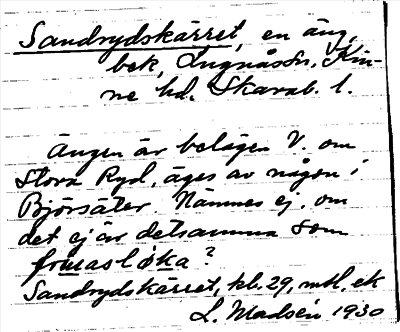 Sandrydskärret, en äng,
bek, Lugnåss sn, Kin-
ne hd. Skarab. l.
Ängen är belägen V. om
Stora Ryd, äges av någon i
Björsäter. Nämnes ej, om
det ej är detsamma som
fråmasløka?
Sandrydskärret, kb. 29, mtl, ek
L. Madsén 1930